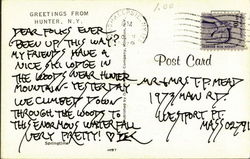 GREETINGS FROM
HUNTER, N.Y.
1.00
DEAR FOLKS EVER
BEEN UP THIS WAY?
MY FRIENDS HAVE A
NICE SKI LODGE IN
THE WOODS NEAR HUNTER
MOUNTAIN - YESTERDAY
WE CLIMBED DOWN
THROUGH THE WOODS TO
THIS ENORMOUS WATERFALL
VERY PRETTY!
Post Card
MR + MRS T P MEAD
1973 MAIN RD.
WESTPORT PT.
MASS 02791